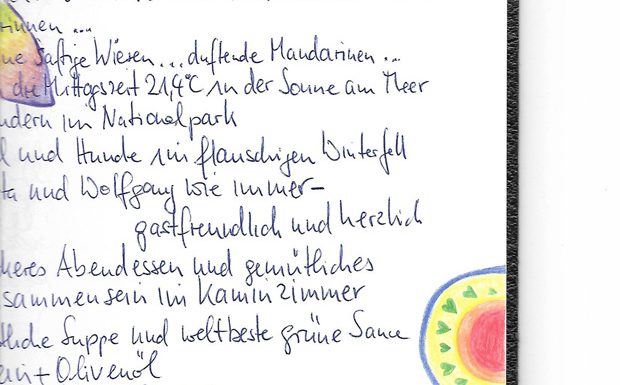 rinnen ...
ne Saftige Wiesen ... duftende Mandarinen ...
die Mittagszeit 21,4°C in der Sonne am Meer
ndern im Nationalpark
l und Hunde im flauschigen Winterfell
ta und Wolfgang wie immer -
gastfreundlich und herzlich
keres Abendessen und gemütliches
sammensein im Kaminzimmer
tliche Suppe und weltbeste grüne Sauce
ein + Olivenöl